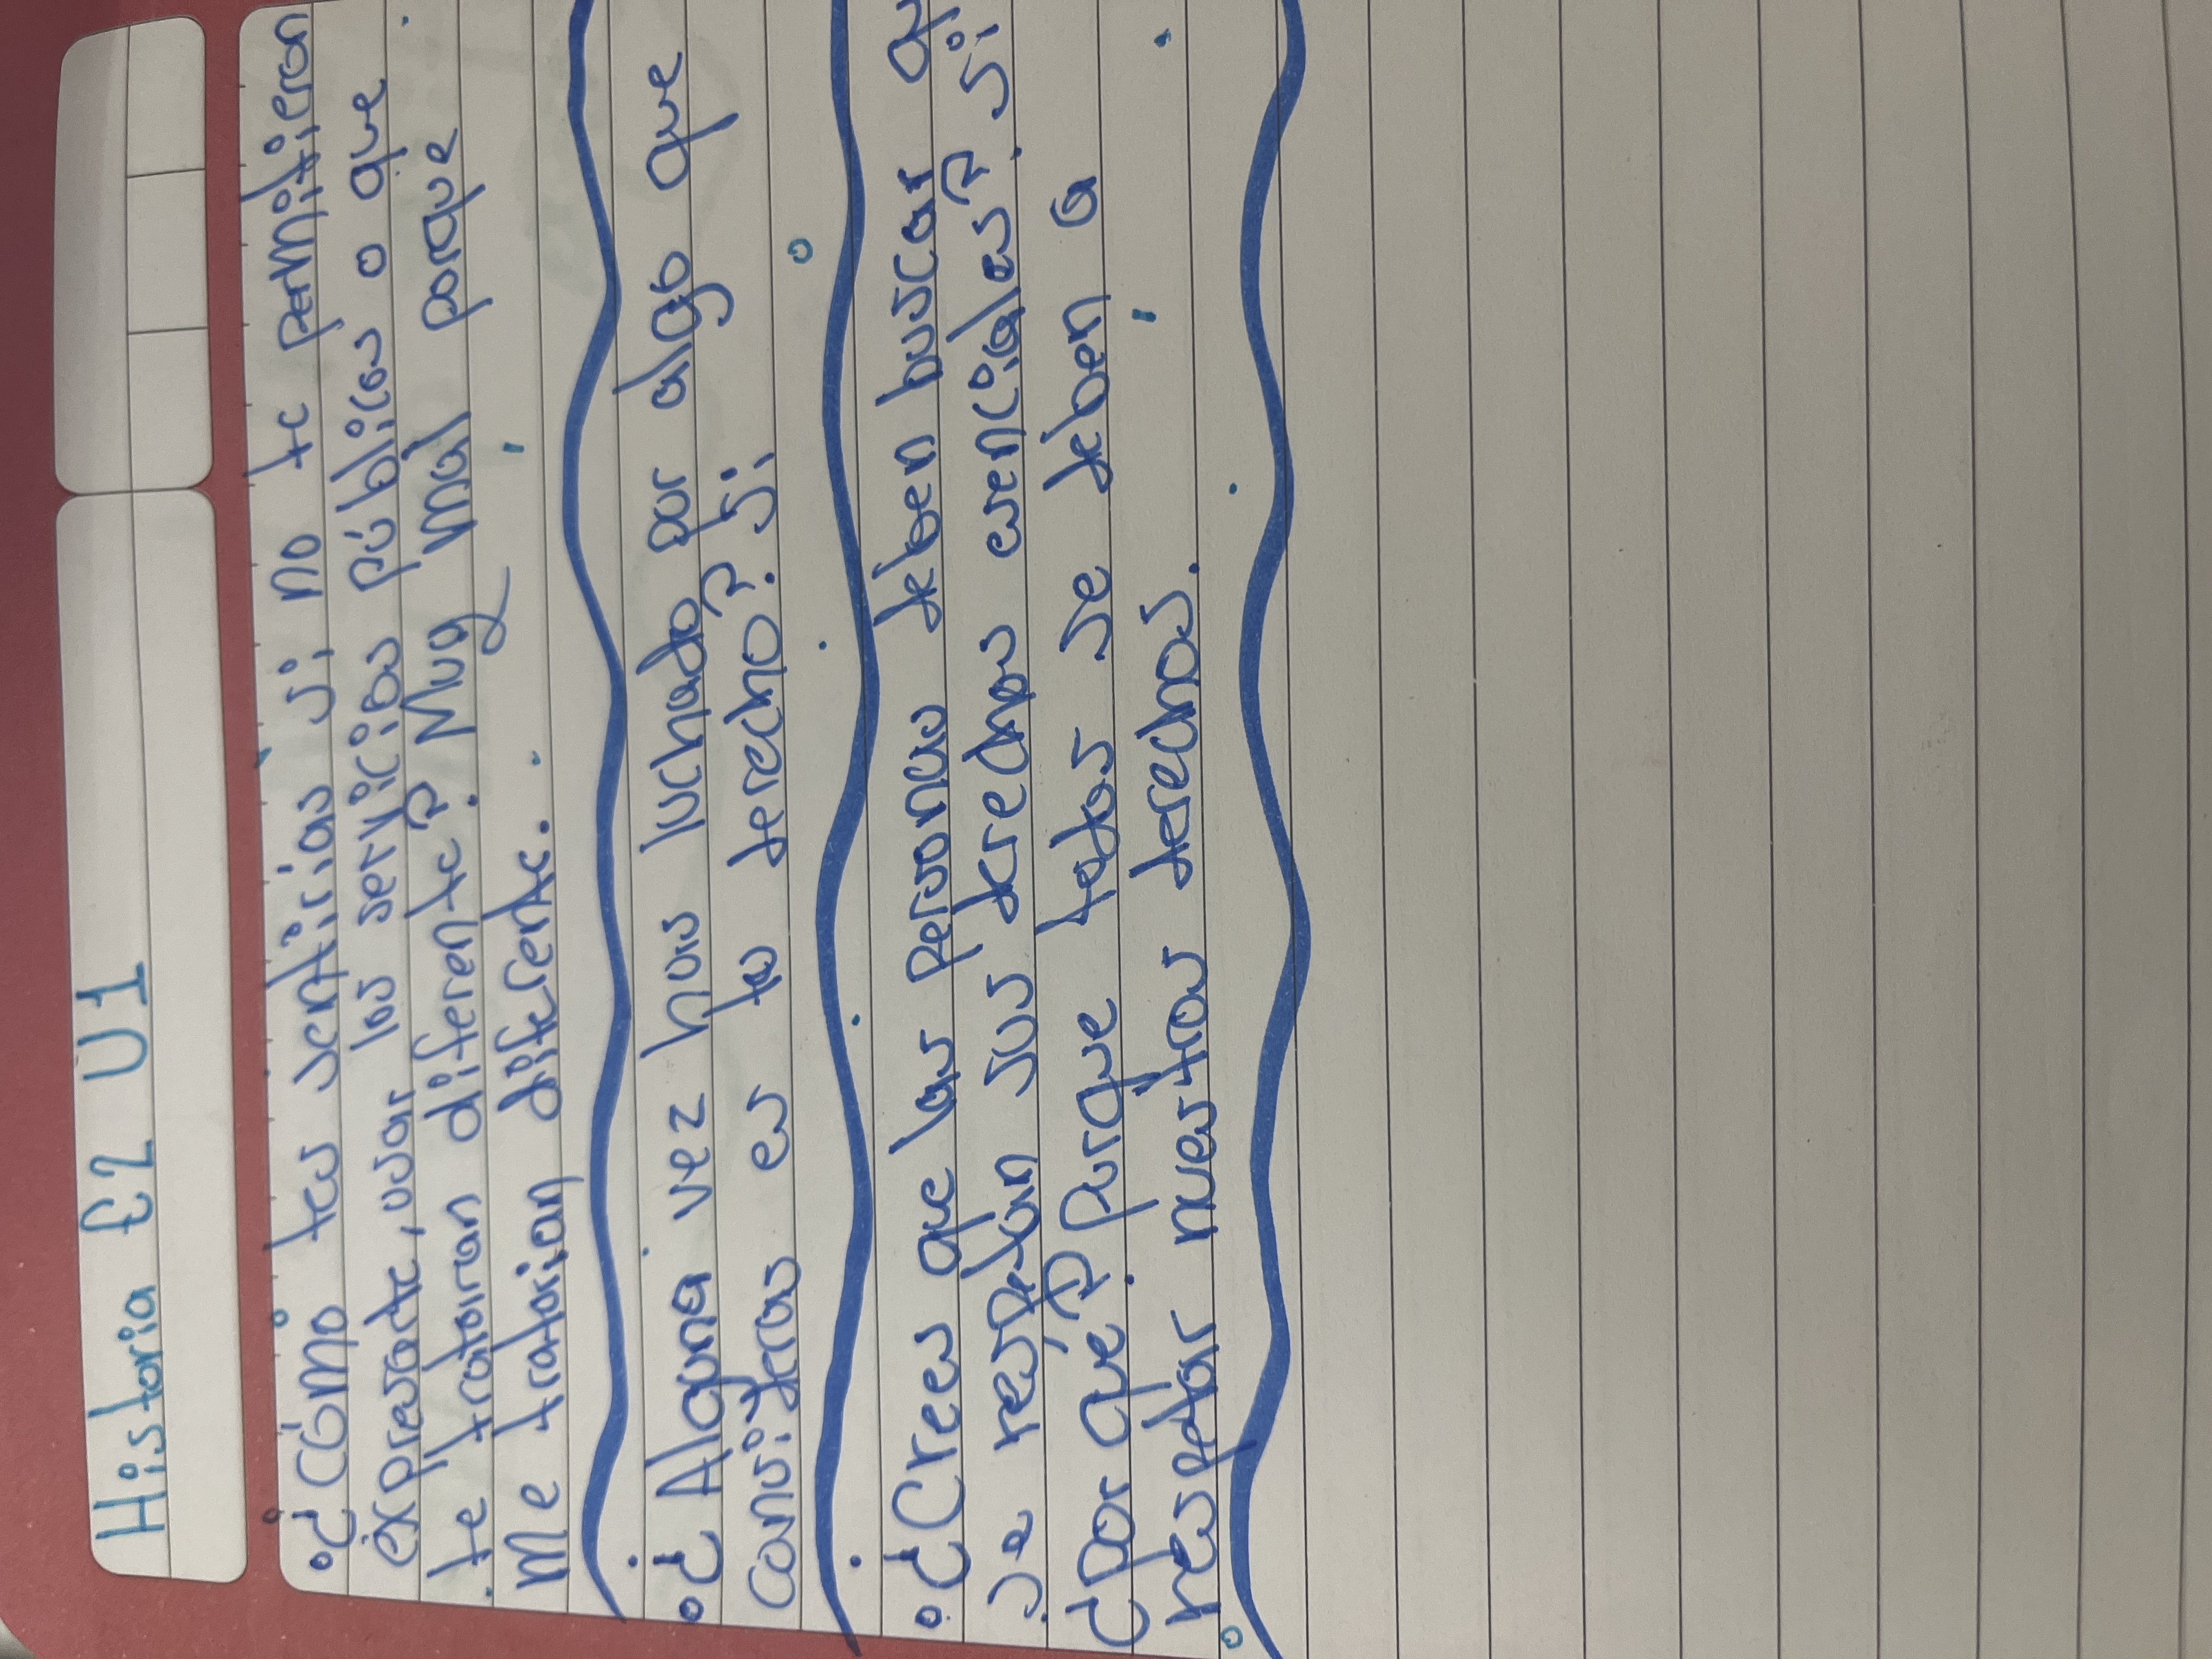 Historia E2 U1
¿Cómo tes sentirías si no te permitieran
expresarte, usar los servicios públicos o que
te trataran diferente? Muy mal porque
me tratarían diferente.
¿Alguna vez has luchado por algo que
consideras es tu derecho? Si
¿Crees que las personas deben buscar
se respeten sus derechos esenciales? Si
¿por qué? Porque todos se deben a
respetar nuestros derechos.